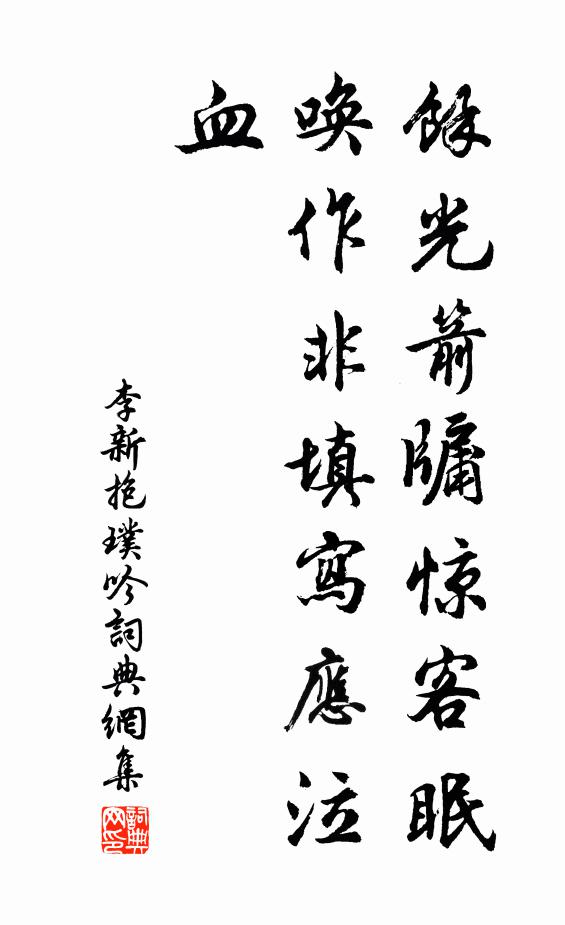 餘光箭牖惊客眠
喚作非填寫應泣
血
李新抱璞吟詞典網集
詞典網印